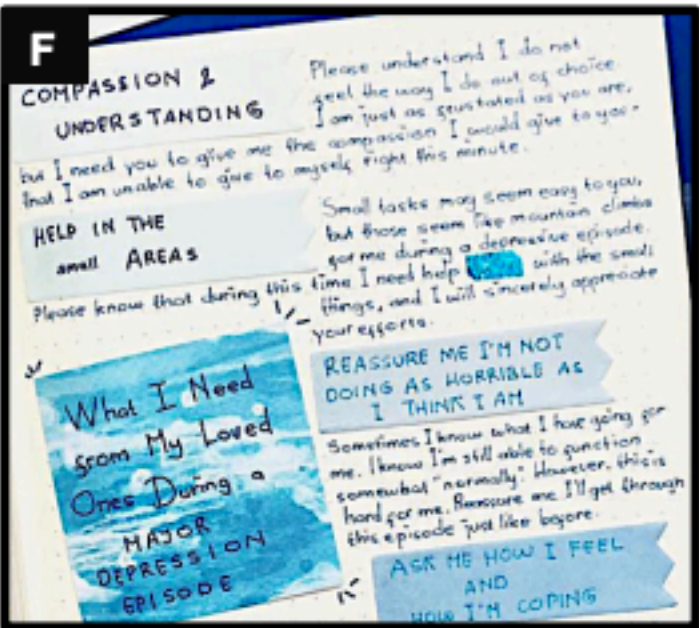 F
COMPASSION &
UNDERSTANDING
Please understand I do not
feel the way I do out of choice
I am just as frustrated as you are,
but I need you to give me the compassion I would give to you-
that I am unable to give to myself right this minute.
HELP IN THE
small AREAS
Small tasks may seem easy to you,
but those seem like mountain climbs
for me during a depressive episode.
Please know that during this time I need help with the small
things, and I will sincerely appreciate
your efforts.
What I Need
from My Loved
Ones During a
MAJOR
DEPRESSION
EPISODE
REASSURE ME I'M NOT
DOING AS HORRIBLE AS
I THINK I AM
Sometimes I know what I have going for
me. I know I'm still able to function
somewhat "normally". However, this is
hard for me. Reassure me I'll get through
this episode just like before.
ASK ME HOW I FEEL
AND
HOW I'M COPING